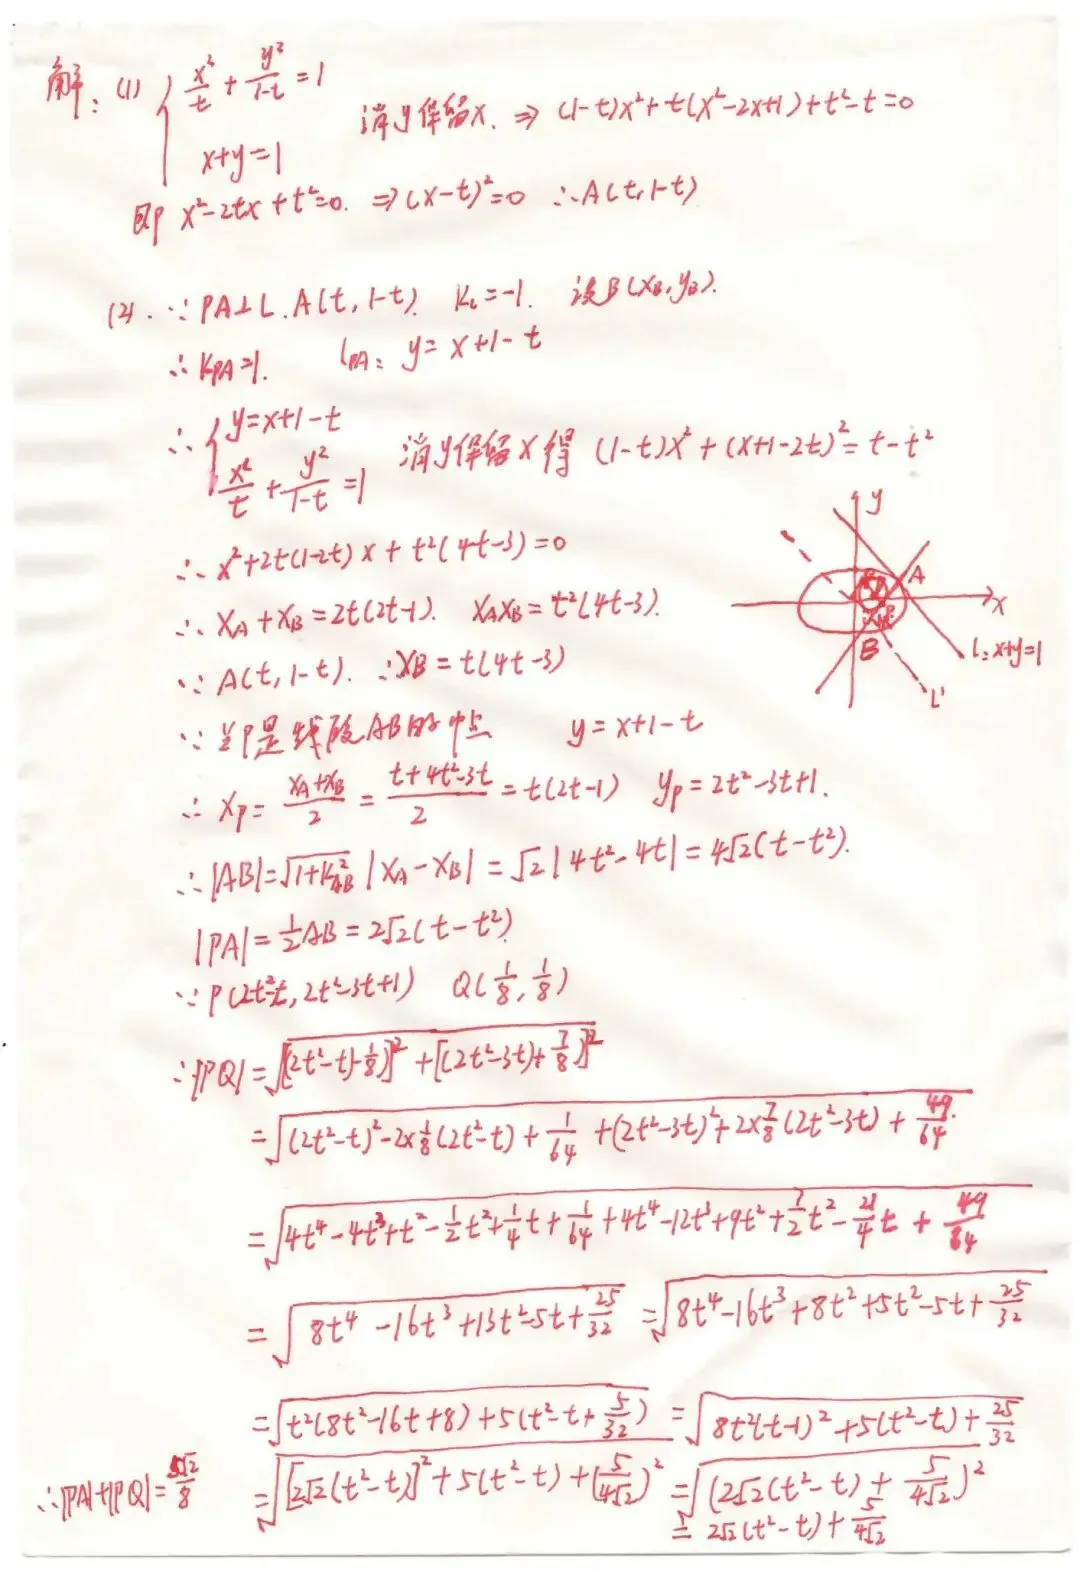 解：(1) { x²/t + y²/(1-t) = 1
x+y=1
消y保留x. ⇒ (1-t)x²+t(x²-2x+1)+t²-t=0
即 x²-2tx+t²=0. ⇒(x-t)²=0 ∴A(t,1-t)
(2). ∵PA⊥L. A(t,1-t). K_L=-1. 设B(x_B,y_B).
∴K_PA=1. l_PA: y=x+1-t
∴ { y=x+1-t
x²/t + y²/(1-t) = 1
消y保留x得 (1-t)x²+(x+1-2t)²=t-t²
∴x²+2t(1-2t)x+t²(4t-3)=0
∴x_A+x_B=2t(2t-1). x_Ax_B=t²(4t-3).
∵A(t,1-t). ∴x_B=t(4t-3)
∵P是线段AB的中点 y=x+1-t
∴x_P=(x_A+x_B)/2=(t+4t²-3t)/2=t(2t-1) y_P=2t²-3t+1.
∴|AB|=√(1+K²_AB)|x_A-x_B|=√2|4t²-4t|=4√2(t-t²).
|PA|=½AB=2√2(t-t²)
∵P(2t²-t,2t²-3t+1) Q(1/8,1/8)
∴|PQ|=√([(2t²-t)-1/8]²+[(2t²-3t)+7/8]²)
=√((2t²-t)²-2×1/8(2t²-t)+1/64+(2t²-3t)²+2×7/8(2t²-3t)+49/64)
=√(4t⁴-4t³+t²-½t²+¼t+1/64+4t⁴-12t³+9t²+7/2t²-21/4t+49/64)
=√(8t⁴-16t³+13t²-5t+25/32) =√(8t⁴-16t³+8t²+5t²-5t+25/32)
=√(t²(8t²-16t+8)+5(t²-t+5/32)) =√(8t²(t-1)²+5(t²-t)+25/32)
=√([2√2(t²-t)]²+5(t²-t)+(5/4√2)²) =√((2√2(t²-t)+5/4√2)²)
=2√2(t²-t)+5/4√2
∴|PA|+|PQ|=5√2/8
y
A
x
B
L:x+y=1
L'